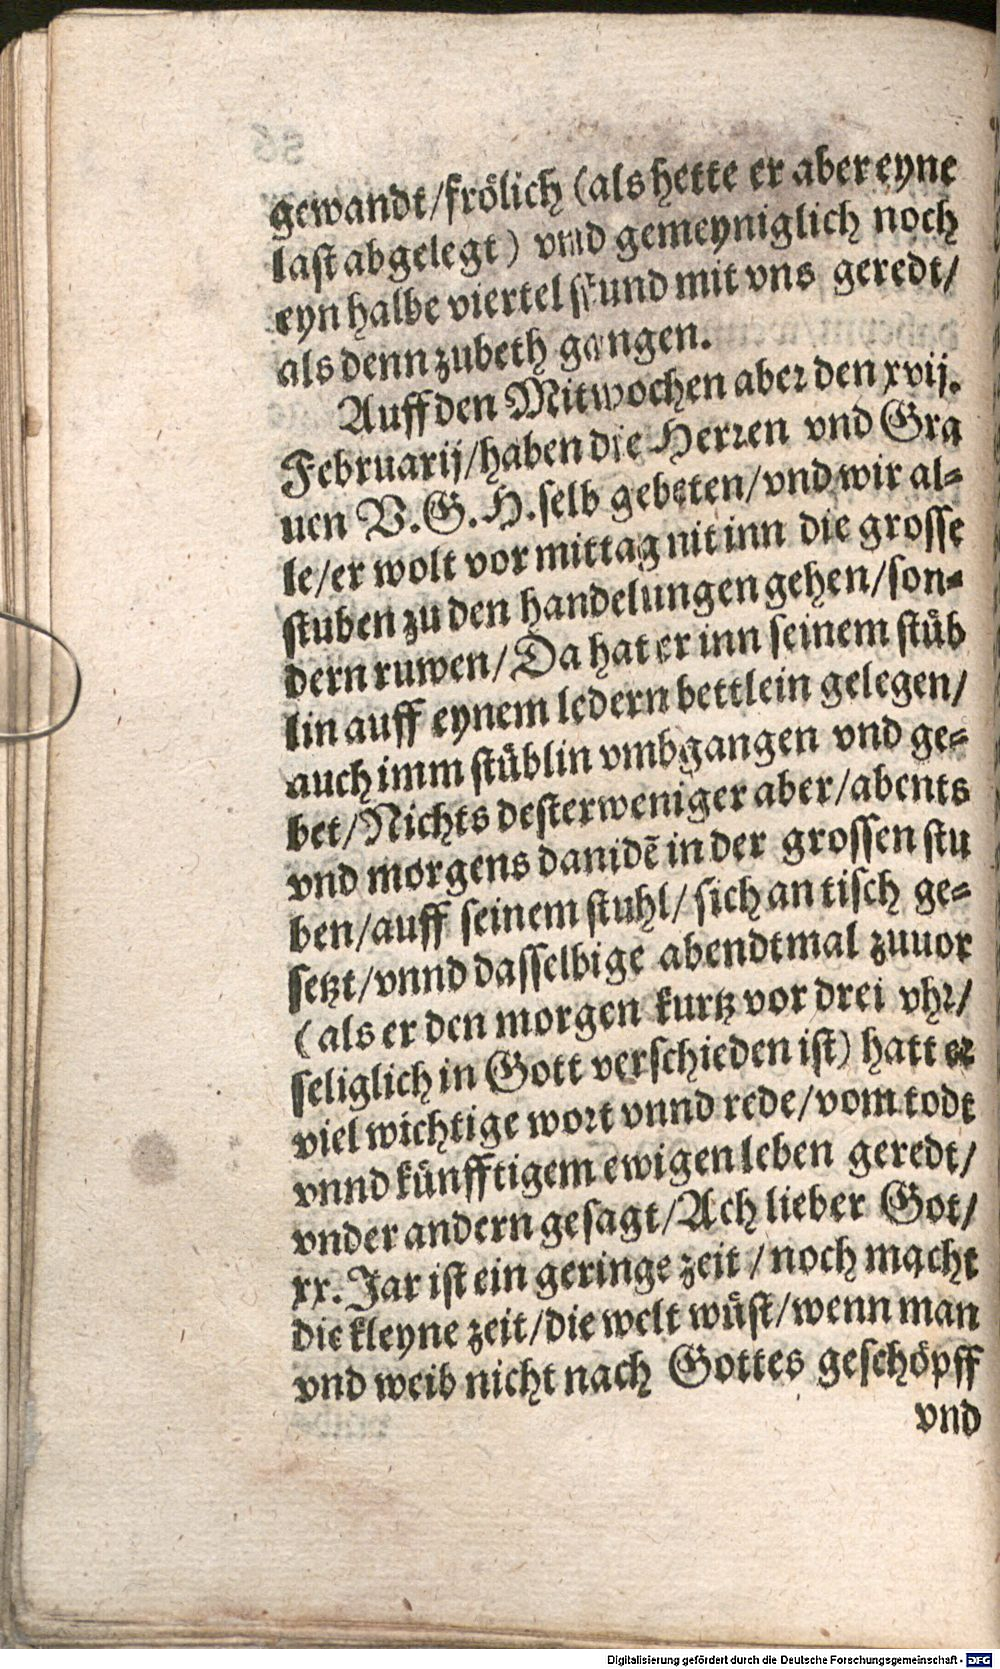 gewandt/frölich (als hette er aber eyne
last abgelegt) vnd gemeyniglich noch
eyn halbe viertel stund mit vns geredt/
als denn zubeth gangen.
Auff den Mitwochen aber den xvij.
Februarij/haben die Herren vnd Gra
uen V.G.H.selb gebeten/vnd wir al-
le/er wolt vor mittag nit inn die grosse
stuben zu den handelungen gehen/son-
dern ruwen/Da hat er inn seinem stüb
lin auff eynem ledern bettlein gelegen/
auch imm stüblin vmbgangen vnd ge-
bet/Nichts desterweniger aber/abents
vnd morgens danidē in der grossen stu
ben/auff seinem stuhl/sich an tisch ge-
setzt/vnnd dasselbige abendtmal zuuor
(als er den morgen kurtz vor drei vhr/
seliglich in Gott verschieden ist) hatt er
viel wichtige wort vnnd rede/vom todt
vnnd künfftigem ewigen leben geredt/
vnder andern gesagt/Ach lieber Got/
xx. Jar ist ein geringe zeit/noch macht
die kleyne zeit/die welt wüst/wenn man
vnd weib nicht nach Gottes geschöpff
vnd
Digitalisierung gefördert durch die Deutsche Forschungsgemeinschaft - DFG